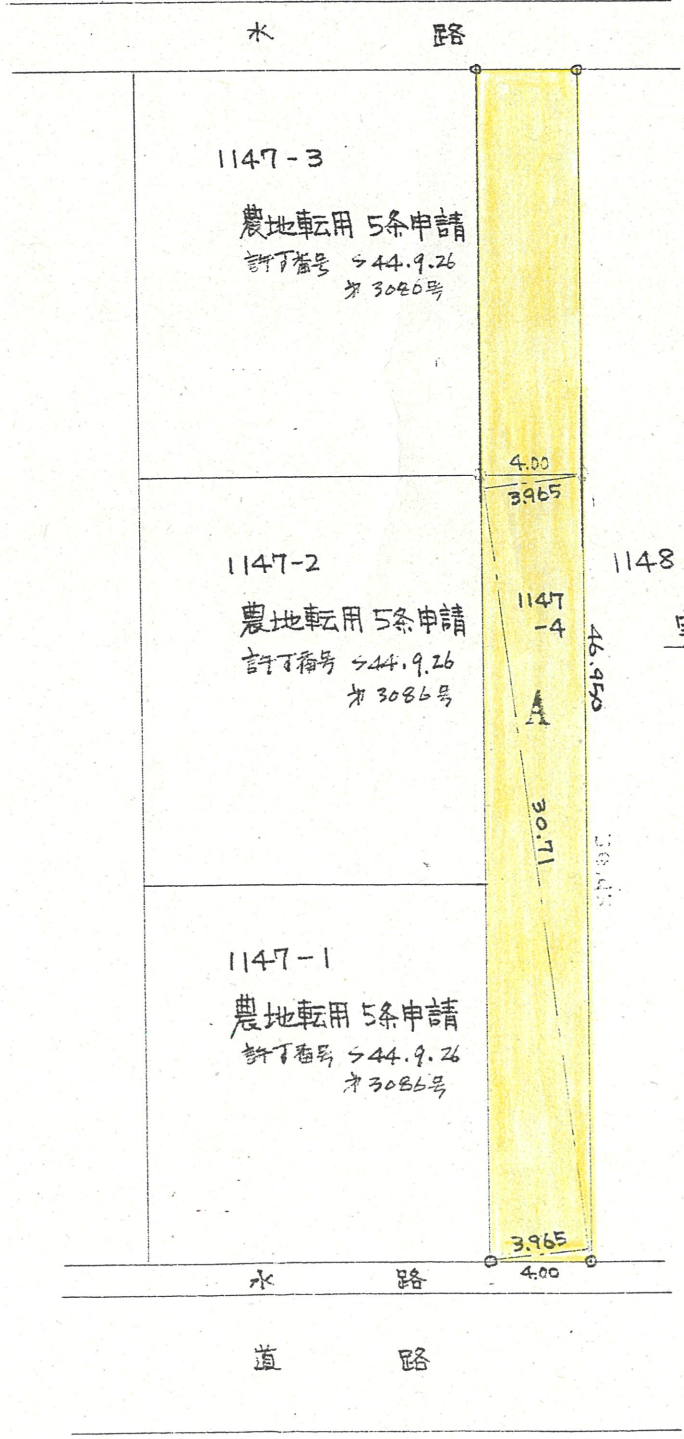 水 路
1147-3
農地転用 5条申請
許可番号 S44.9.26
第3086号
4.00
3.965
1147-2
農地転用 5条申請
許可番号 S44.9.26
第3086号
1147
-4
A
1148
46.950
30.71
1147-1
農地転用 5条申請
許可番号 S44.9.26
第3086号
3.965
4.00
水 路
道 路